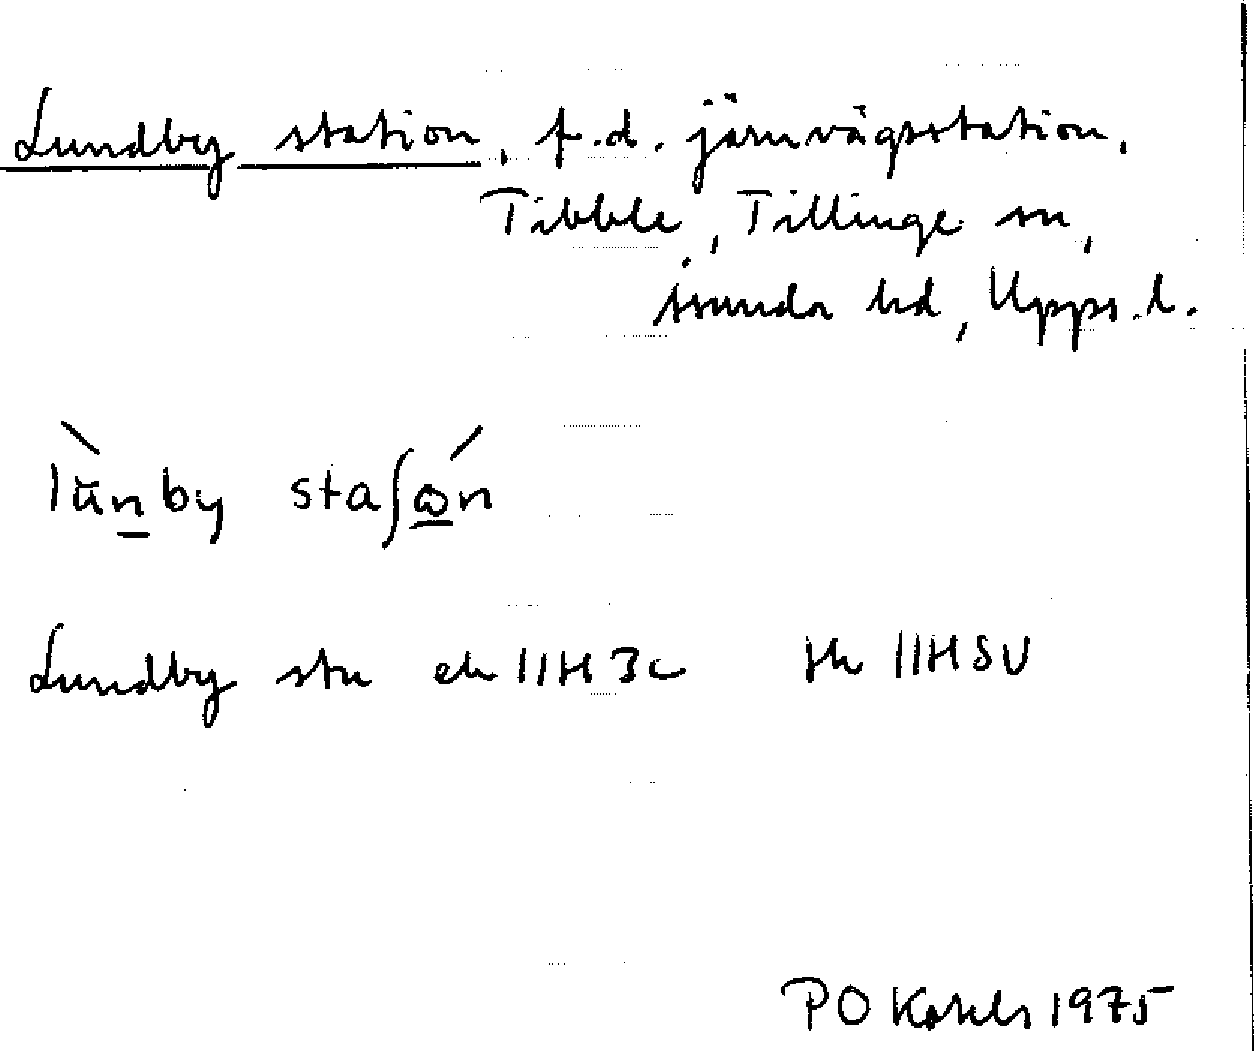 Lundby station, f.d. järnvägsstation,
Tibble, Tillinge sn,
Åsunda hd, Upps. l.
lùn̲by staʃώ̲n
Lundby stn ek 11H 3c hk 11H SV
PO 1975